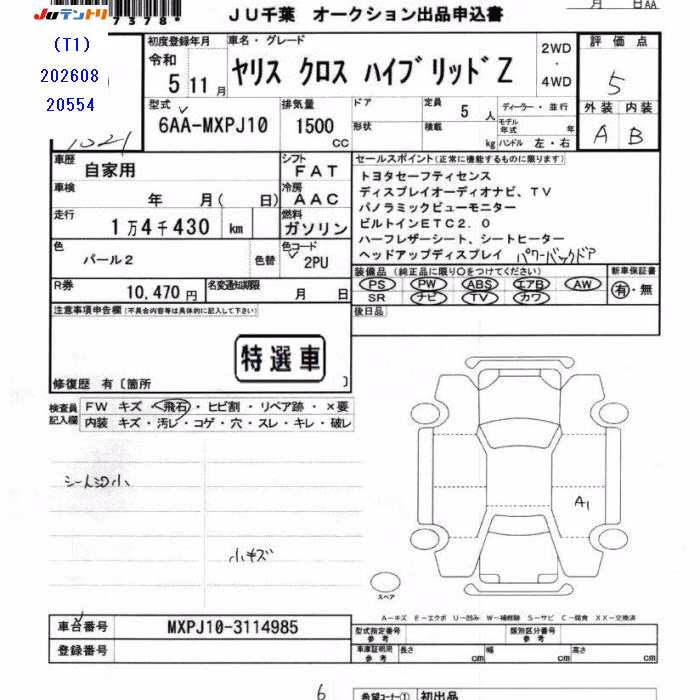 JUテントリ
7378*
JU千葉 オークション出品申込書
月 日AA
(T1)
202608
20554
初度登録年月
令和
5 11月
車名・グレード
ヤリス クロス ハイブリッド Z
2WD
・
4WD
評価点
5
外装 内装
A B
型式
6AA-MXPJ10
排気量
1500
CC
ドア
形状
定員
5人
積載
kg
ディーラー・並行
モデル年式 年
ハンドル 左・右
車歴
自家用
シフト
FAT
車検
年 月( 日)
冷房
AAC
走行
1万4千430 km
燃料
ガソリン
色
パール2
色替
色コード
2PU
R券
10,470円
名変通知期限
月 日
セールスポイント(正常に機能するものに限ります)
トヨタセーフティセンス
ディスプレイオーディオナビ、TV
パノラミックビューモニター
ビルトインETC2.0
ハーフレザーシート、シートヒーター
ヘッドアップディスプレイ パワーバックドア
装備品 (純正品に限り○をつけてください)
PS PW ABS エアB AW
SR ナビ TV カワ
新車保証書
有・無
後日品
注意事項申告欄(不具合内容等は具体的に記入して下さい)
特選車
修復歴 有〔箇所 〕
検査員記入欄
FW キズ・飛石・ヒビ割・リペア跡・×要
内装 キズ・汚レ・コゲ・穴・スレ・キレ・破レ
小キズ
A1
スペア
A-キズ E-エクボ U-凹み W-補修跡 S-サビ C-腐食 XX-交換済
車台番号
MXPJ10-3114985
登録番号
型式指定番号
参考
類別区分番号
参考
車庫証明用
参考
長さ cm
幅 cm
高さ cm
6
希望コーナー① 初出品